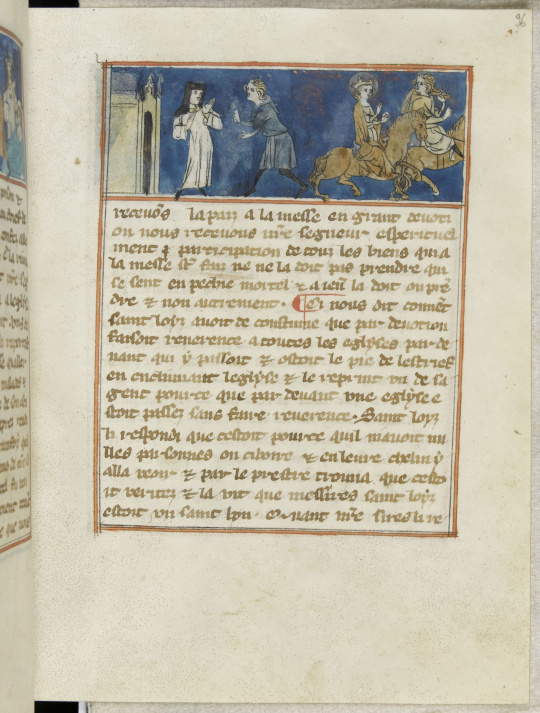 96
recevōs la pais a la messe en grant devoti
on nous recevons nr̄e segneur esperituel
ment ⁊ participation de touz les biens qua
la messe sont faiz ne ne la doit pas prendre qui
se sent en pechie mortel ⁊ a ieū la doit on prē
dre ⁊ non autrement. Ci nous dit comēt
saint loys avoit de coustume que par devotion
faisoit reverence a toutes les eglyses par de
vant qui y passoit ⁊ ostoit le pie de lestrief
en enclinant leglyse ⁊ le reprint un de sa
gent pour ce que par devant une eglyse e
stoit passez sans faire reverence. Saint loys
li respondi que cestoit pour ce quil ni avoit nu
lles parsonnes on ciboire ⁊ en leure chelui y
alla veoir ⁊ par le prestre trouva que cesto
it veritez ⁊ la vit que messires saint loys
estoit un saint hom. Quant nr̄e sires